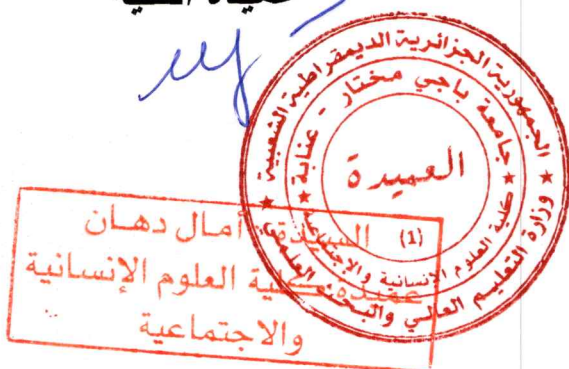 الجمهورية الجزائرية الديمقراطية الشعبية
★ وزارة التعليم العالي والبحث العلمي ★
جامعة باجي مختار - عنابة
★ كلية العلوم الإنسانية والاجتماعية ★
العميدة
(1)
السيدة أمال دهان
عميدة كلية العلوم الإنسانية
والاجتماعية